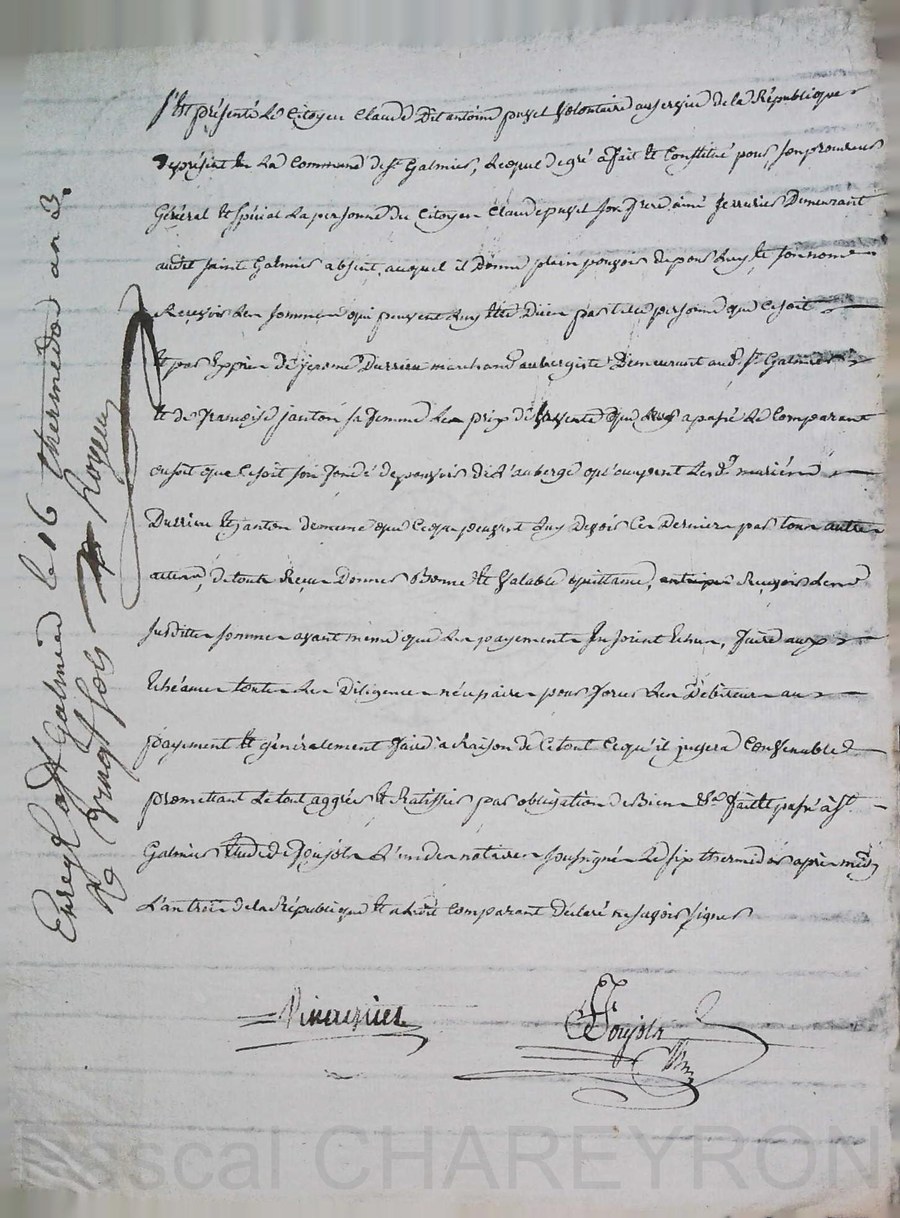 S'est présenté Le Citoyen Claude Dit antoine puzet Volontaire au service de la République
a présent En La Commune de St. Galmier, Lequel de gré a fait et Constitué pour son procureur
Général et spécial La personne du Citoyen Claude puzet son frere ainé serrurier Demeurant
audit saint Galmier absent, auquel il Donne plein pouvoir de pour Luy et son nom
Recevoir Les sommes qui peuvent Luy etre Dües par telle personne que Ce soit
Et par Exprès de jerome Durrieu marchand aubergiste Demeurant aud. St. Galmier
Et de françoise janton sa femme Le prix de vente que a passé Le Comparant
ou soit que Ce soit son fondé de pouvoir de L'auberge qu'occupent Lesd. mariés
Durrieu Et janton de meme que Ce que peuvent Luy Devoir Ces Derniers par tous autres
actes, de toute Reçue Donner Bonne Et Valable quittance, Recevoir Les
susdittes sommes avant même que Les payements En soient Echus, faire aux
Echéances toutes Les Diligences nécessaires pour forcer Les Débiteurs au
payement Et généralement faire a Raison de Ce tout Ce qu'il jugera Convenable
promettant Le tout aggréer Et Ratiffier par obligation de Biens &a fait Et passé à St.
Galmier Etude de Poujols L'un des notaires soussignés Le six thermidor après midy
L'an trois de la République Et a Ledit Comparant Déclaré ne savoir signer
Vinerier
Poujols
Nre
Enregt. à St. Galmier le 16 thermidor an 3.
R. vingt sols Royer
Pascal CHAREYRON